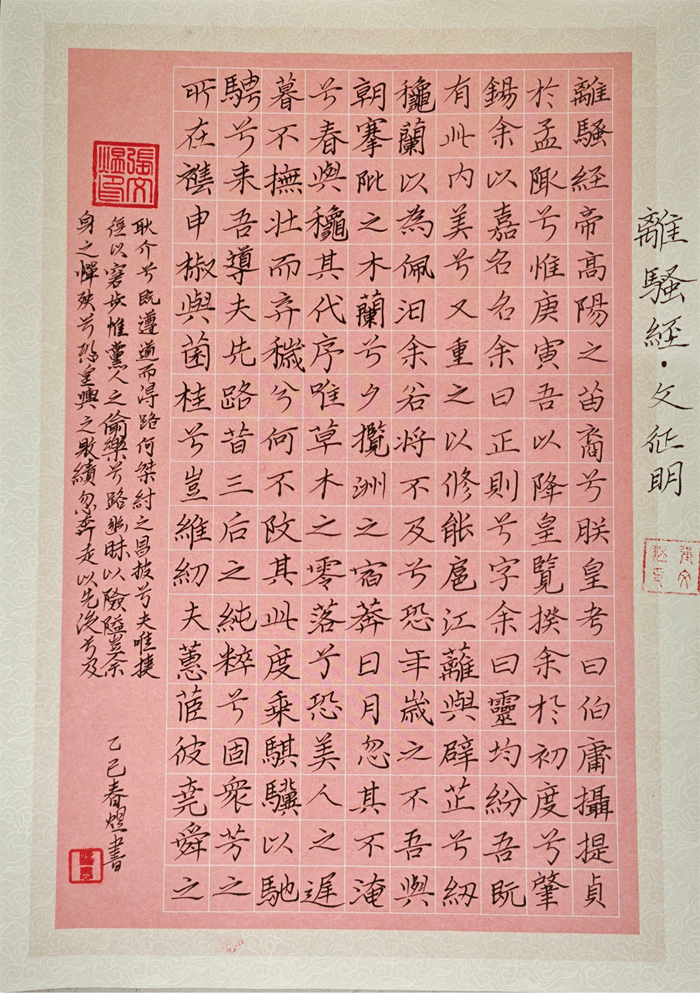 離騷経·文征明
離騷経帝高陽之苗裔兮朕皇考曰伯庸攝提貞
於孟陬兮惟庚寅吾以降皇覽揆余於初度兮肇
錫余以嘉名名余曰正則兮字余曰靈均紛吾既
有此内美兮又重之以修能扈江蘺與辟芷兮紉
龝蘭以為佩汨余若將不及兮恐年歲之不吾與
朝搴阰之木蘭兮夕攬洲之宿莽日月忽其不淹
兮春與龝其代序唯草木之零落兮恐美人之遲
暮不撫壯而弃穢兮何不改其此度乘騏驥以馳
騁兮来吾導夫先路昔三后之純粹兮固衆芳之
所在襍申椒與菌桂兮豈維紉夫蕙茝彼堯舜之
耿介兮既遵道而得路何桀紂之昌披兮夫唯捷
徑以窘步惟黨人之偷樂兮路幽昧以險隘豈余
身之憚殃兮恐皇輿之敗績忽奔走以先後兮及
乙巳春煜書
張文煜印